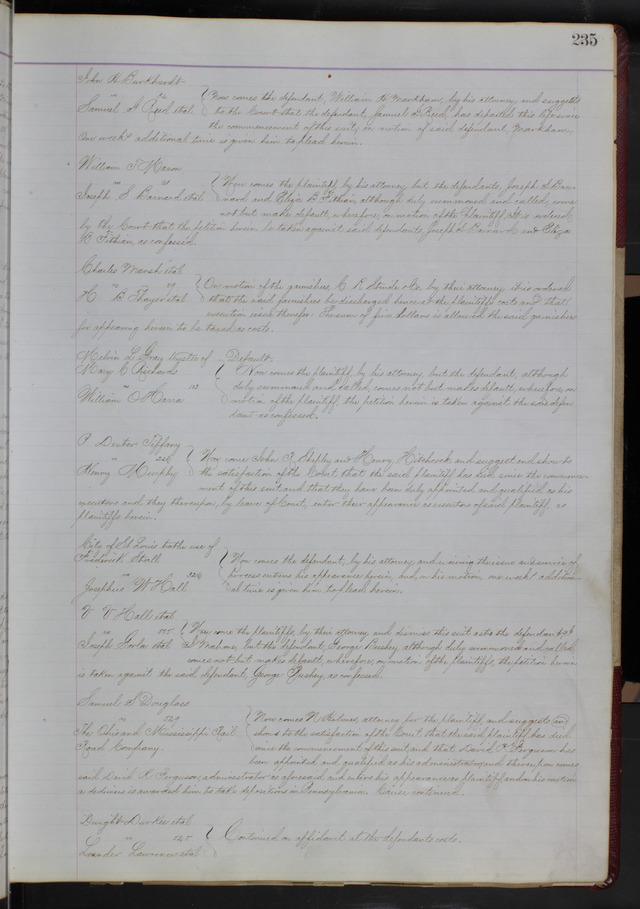 235
John H Burkhardt
vs
Samuel D Reed et al { Now comes the defendant, William H Markham, by his attorney, and suggests
to the Court that the defendant, Samuel D Reed, has departed this life since
the commencement of this suit, on motion of said defendant, Markham,
one week additional time is given him to plead herein.
William T Mason
vs
Joseph S Barnard et al { Now comes the plaintiff, by his attorney, but the defendants, Joseph S Bar-
nard and Eliza B Fithian, although duly summoned and called, come
not but make default, wherefore, on motion of the Plaintiff, it is ordered
by the Court that the petition herein be taken against said defendants Joseph S Barnard and Eliza
Fithian, as confessed.
Charles Marsh et al
vs
H B Thayer et al { On motion of the garnishee, C R by their attorney it is ordered
that the said garnishee be discharged hence at the plaintiffs costs and that
execution issue therefor. The sum of five dollars is allowed the said garnishee
for appearing herein to be taxed as costs.
Melvin L Gray trustee of Default.
Mary C Richards { Now comes the plaintiff, by his attorney, but the defendant, although
duly summoned and called, comes not but makes default, wherefore, on
William O'Hara motion of the plaintiff, the petition herein is taken against the said defen
dant as confessed.
P Dexter Tiffany
vs
Henry Murphy { Now come John R Shepley and Henry Hitchcock and suggest and show to
the satisfaction of the Court that the said plaintiff has died since the commence
ment of this suit and that they have been duly appointed and qualified as his
executors and they thereupon, by leave of Court, enter their appearance as executors of said plaintiff, as
plaintiffs herein.
City of St Louis to the use of
Frederick { Now comes the defendant, by his attorney and waiving the issue and service of
process enters his appearance herein, and, on his motion, one week addition-
Josephus W Hall al time is given him to plead herein.
V V Hall et al
vs
Joseph Gorla et al { Now come the plaintiffs, by their attorney and dismiss this suit as to the defendant
but the defendant, George although duly summoned and called
comes not but makes default, wherefore, on motion of the plaintiffs, the petition herein
is taken against the said defendant, George as confessed.
Samuel S Douglass
vs 529
The Ohio and Mississippi Rail
Road Company { Now comes N Holmes, attorney for the plaintiff and suggests and
shows to the satisfaction of the Court that the said plaintiff has died
since the commencement of this suit and that David K Ferguson has
been appointed and qualified as his administrator, and thereupon comes
said David K Ferguson, administrator as aforesaid and enters his appearance as plaintiff and on his motion
a dedimus is awarded him to take depositions in Pennsylvania. Cause continued.
Dwight Durkee et al
vs
Leander Lawrence et al { Continued on affidavit at the defendants costs.